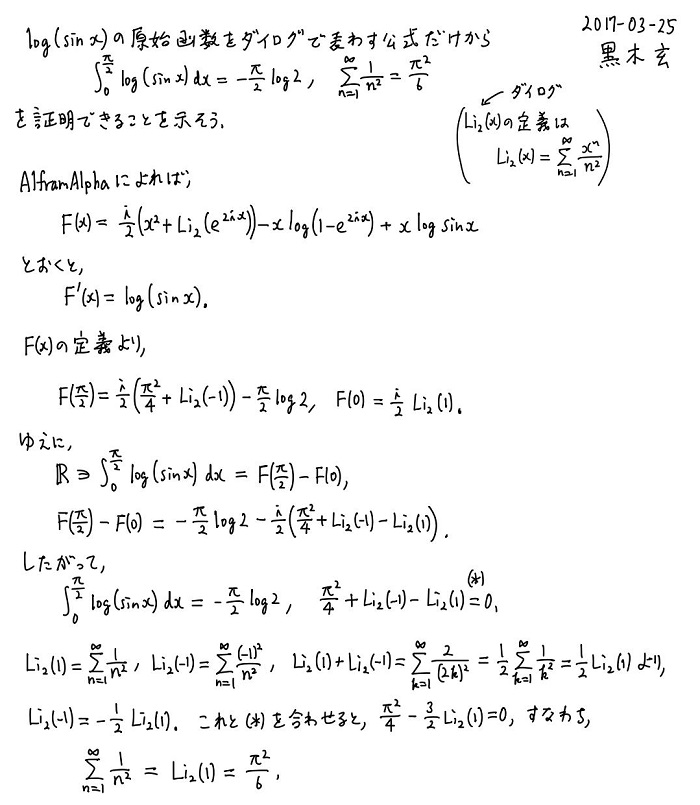 log(sin x)の原始函数をダイログで表わす公式だけから
2017-03-25
黒木玄
∫_0^{π/2} log(sin x) dx = -π/2 log 2, ∑_{n=1}^∞ 1/n² = π²/6
を証明できることを示そう.
ダイログ
Li₂(x)の定義は
Li₂(x) = ∑_{n=1}^∞ xⁿ/n²
AlframAlphaによれば,
F(x) = i/2 (x² + Li₂(e^{2ix})) - x log(1-e^{2ix}) + x log sin x
とおくと,
F'(x) = log(sin x).
F(x)の定義より,
F(π/2) = i/2 (π²/4 + Li₂(-1)) - π/2 log 2, F(0) = i/2 Li₂(1).
ゆえに,
ℝ ∋ ∫_0^{π/2} log(sin x) dx = F(π/2) - F(0),
F(π/2) - F(0) = -π/2 log 2 - i/2 (π²/4 + Li₂(-1) - Li₂(1)).
したがって,
∫_0^{π/2} log(sin x) dx = -π/2 log 2, π²/4 + Li₂(-1) - Li₂(1) (*)= 0,
Li₂(1) = ∑_{n=1}^∞ 1/n², Li₂(-1) = ∑_{n=1}^∞ (-1)²/n², Li₂(1) + Li₂(-1) = ∑_{k=1}^∞ 2/(2k)² = 1/2 ∑_{k=1}^∞ 1/k² = 1/2 Li₂(1) より,
Li₂(-1) = -1/2 Li₂(1). これと(*)を合わせると, π²/4 - 3/2 Li₂(1) = 0, すなわち,
∑_{n=1}^∞ 1/n² = Li₂(1) = π²/6,